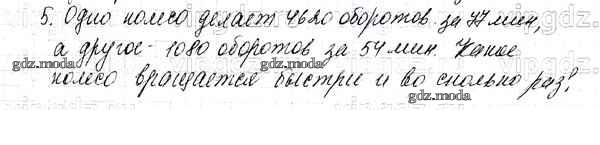 5. Одно колесо делает 4620 оборотов за 77 мин,
а другое - 1080 оборотов за 54 мин. Какое
колесо вращается быстри и во сколько раз?
gdz.moda gdz.moda gdz.moda